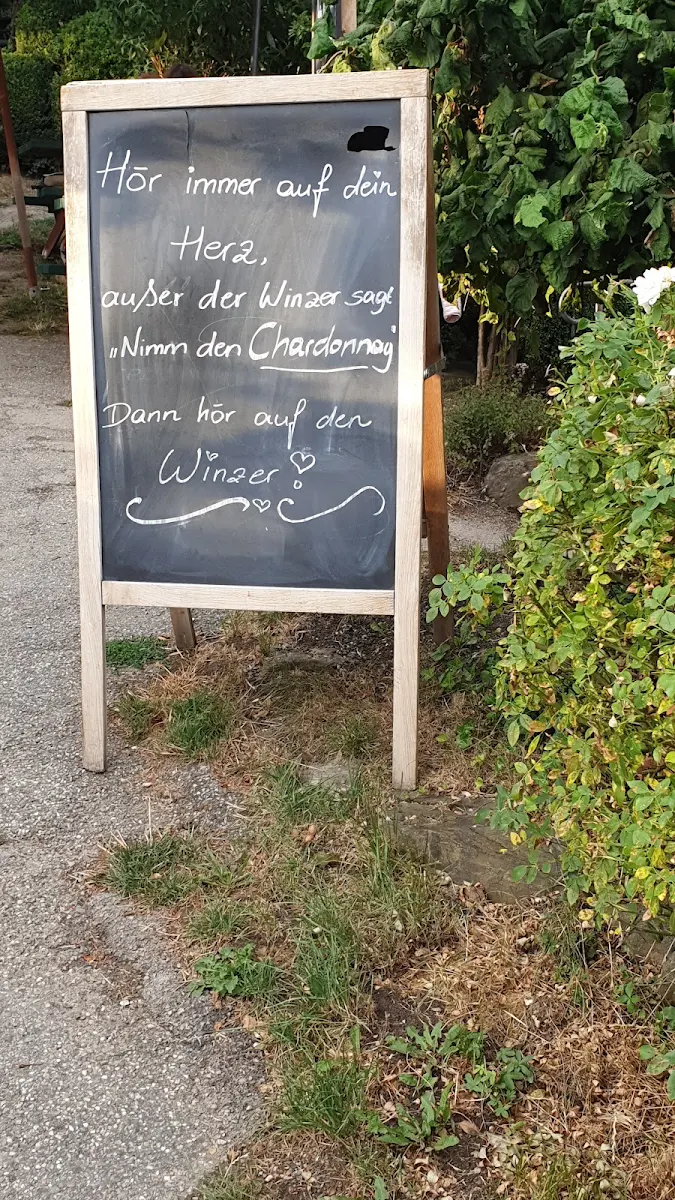 Hör immer auf dein
Herz,
außer der Winzer sagt
„Nimm den Chardonnay"
Dann hör auf den
Winzer!